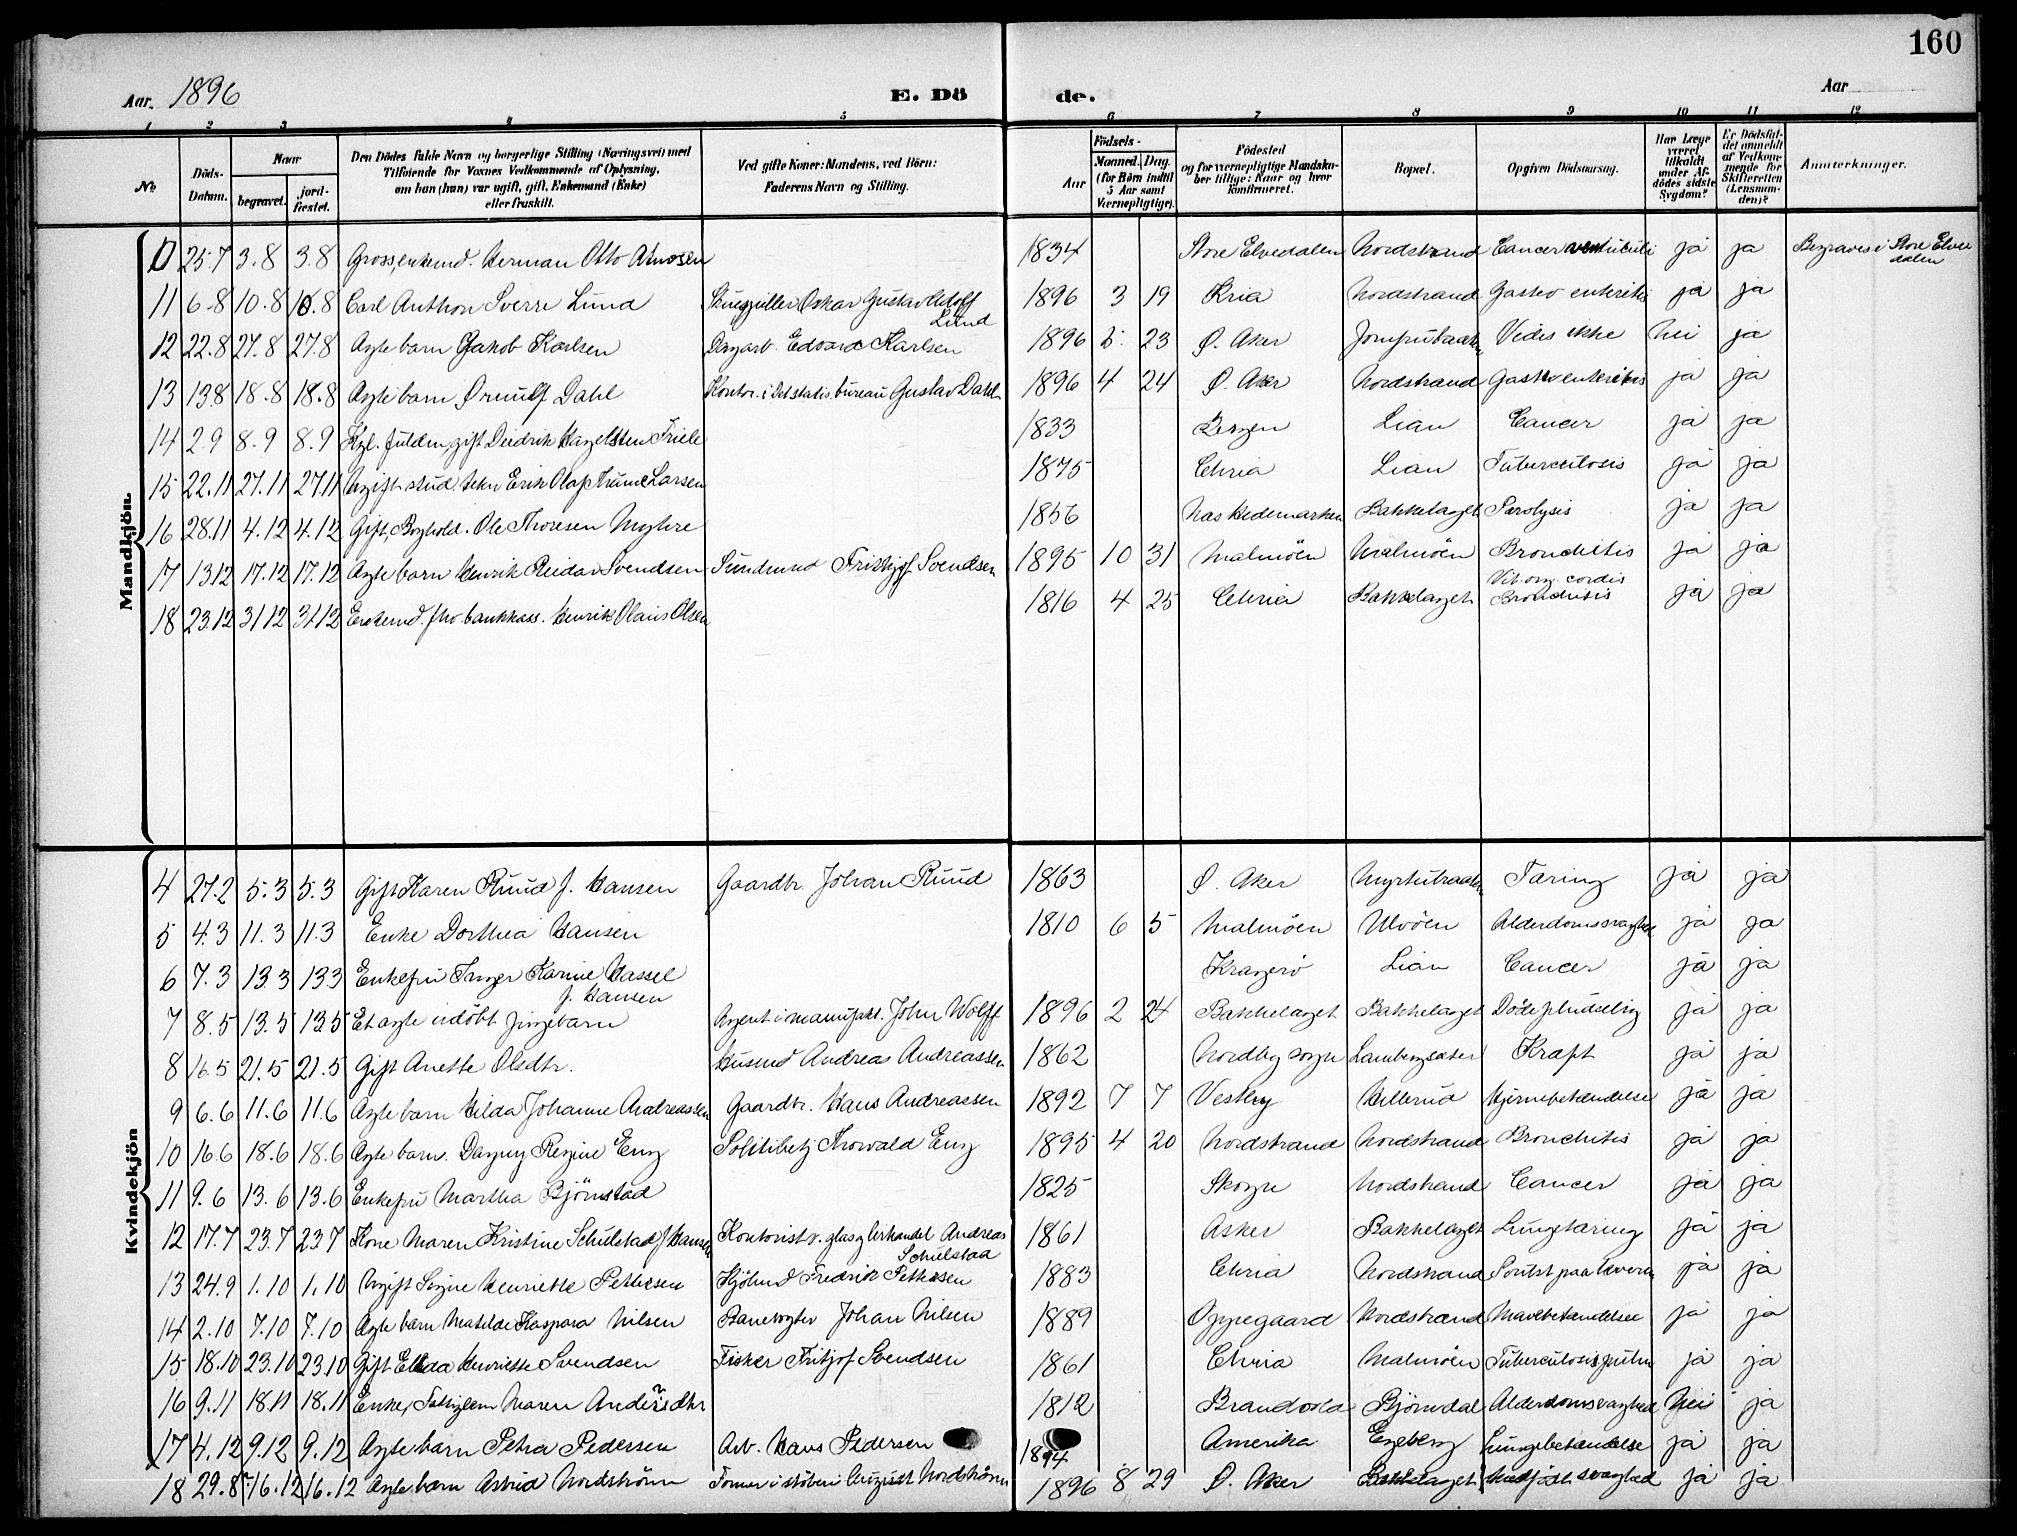 160
Aar. 1896 E. Dö de. Aar
1 2 3 4 5 6 7 8 9 10 11 12
No Döds-Datum. Naar begravet. jordfæstet. Den Dödes fulde Navn og borgerlige Stilling (Næringsvei) med Tilföiende for Voxnes Vedkommende af Oplysning, om han (hun) var ugift, gift, Enkemand (Enke) eller fraskilt. Ved gifte Koner: Mandens, ved Börn: Faderens Navn og Stilling. Födsels- Aar Maaned. Dag. (for Börn indtil 5 Aar samt Værnepligtige). Födested og for værnepligtige Mandskaber tillige: Naar og hvor konfirmeret. Bopæl. Opgiven Dödsaarsag. Har Læge været tilkaldt under Afdödes sidste Sygdom? Er Dödsfaldet anmeldt af Vedkommende for Skifteretten (Lensmanden)? Anmerkninger.
Mandkjön.
10 25.7 3.8 3.8 Gross, enkemd. Herman Otto Amosen 1834 Store Elvedalen Nordstrand Cancer ventriculi ja ja Begraves i Store Elvedalen
11 6.8 10.8 10.8 Carl Anthon Sverre Lund Oskar Gustav Adolf Lund 1896 3 19 Kria Nordstrand Gastro enteritis ja ja
12 22.8 27.8 27.8 Ægte barn Jakob Karlsen Dagarb. Edvard Karlsen 1896 5 23 Ø. Aker Jomfrubraaten Vides ikke Nei ja
13 13.8 18.8 18.8 Ægte barn Ørnulf Dahl Kontor. i Det statis. bureau Gustav Dahl 1896 4 24 Ø. Aker Nordstrand Gastroenteritis ja ja
14 2.9 8.9 8.9 Kgl. fuldm, gift Diedrik Hagelsten Friele 1833 Bergen Lian Cancer ja ja
15 22.11 27.11 27.11 Ugift stud. tekn Erik Olaf Larsen 1875 Chria Lian Tuberculosis ja ja
16 28.11 4.12 4.12 Gift, Boghold. Ole Thoresen Myhre 1856 Nas Hedemarken Bakkelaget Paralysis ja ja
17 13.12 17.12 17.12 Ægte barn Henrik Reidar Svendsen Sundmnd Fritkjof Svendsen 1895 10 31 Malmöen Malmöen Bronchitis ja ja
18 23.12 31.12 31.12 Enkemd. fhv. bankkass. Henrik Olaus Olsen 1816 4 25 Chria Bakkelaget Vit. org. cordis Bronchitis ja ja
Kvindekjön
4 27.2 5.3 5.3 Gift Karen Ruud f. Hansen Gaardbr. Johan Ruud 1863 Ø. Aker Tæring ja ja
5 4.3 11.3 11.3 Enke Dorthea Hansen 1810 6 5 Malmöen Ulvöen Alderdomssvaghed ja ja
6 7.3 13.3 13.3 Enkefru Inger Karine Hassel f. Hansen Kragerö Lian Cancer ja ja
7 8.5 13.5 13.5 Et ægte udöbt pigebarn Agent i manufakt. John Wolff 1896 2 24 Bakkelaget Bakkelaget Döde pludselig ja ja
8 16.5 21.5 21.5 Gift Anette Olsdtr. Husmd Andreas Andreassen 1862 Nordby sogn Lambergsæter Kræft ja ja
9 6.6 11.6 11.6 Ægte barn Hilda Johanne Andreassen Gaardbr. Hans Andreassen 1892 7 7 Vestby Hellerud Hjernebetændelse ja ja
10 16.6 18.6 18.6 Ægte barn. Dagny Regine Eng Politibetj Thorvald Eng 1895 4 20 Nordstrand Nordstrand Bronchitis ja ja
11 9.6 13.6 13.6 Enkefru Martha Björnstad 1825 Skogn Nordstrand Cancer ja ja
12 17.7 23.7 23.7 Kone Maren Kristine Schulstad f Hansen Kontorist v. glasslerhandel Andreas Schulstad 1861 Asker Bakkelaget Lungetæring ja ja
13 24.9 1.10 1.10 Ugift Signe Henriette Pettersen Kjöbmd Fredrik Pettersen 1883 Chria Nordstrand Svulst paa leveren ja ja
14 2.10 7.10 7.10 Ægte barn Matilde Kaspara Nilsen Banevogter Johan Nilsen 1889 Oppegaard Nordstrand Mavebetændelse ja ja
15 18.10 23.10 23.10 Gift Ellida Henriette Svendsen Fisker Fritjof Svendsen 1861 Chria Malmöen Tuberculosis pulm ja ja
16 9.11 18.11 18.11 Enke, Fattiglem Maren Andersdtr 1812 Brandvold Björndal Alderdomssvaghed Nei ja
17 4.12 9.12 9.12 Ægte barn Petra Pedersen Arb. Hans Pedersen 1894 Amerika Engeberg Lungebetændelse ja ja
18 29.8 16.12 16.12 Ægte barn Astrid Nordström Former i støberi August Nordström 1896 8 29 Ø. Aker Bakkelaget Medfödt svaghed ja ja